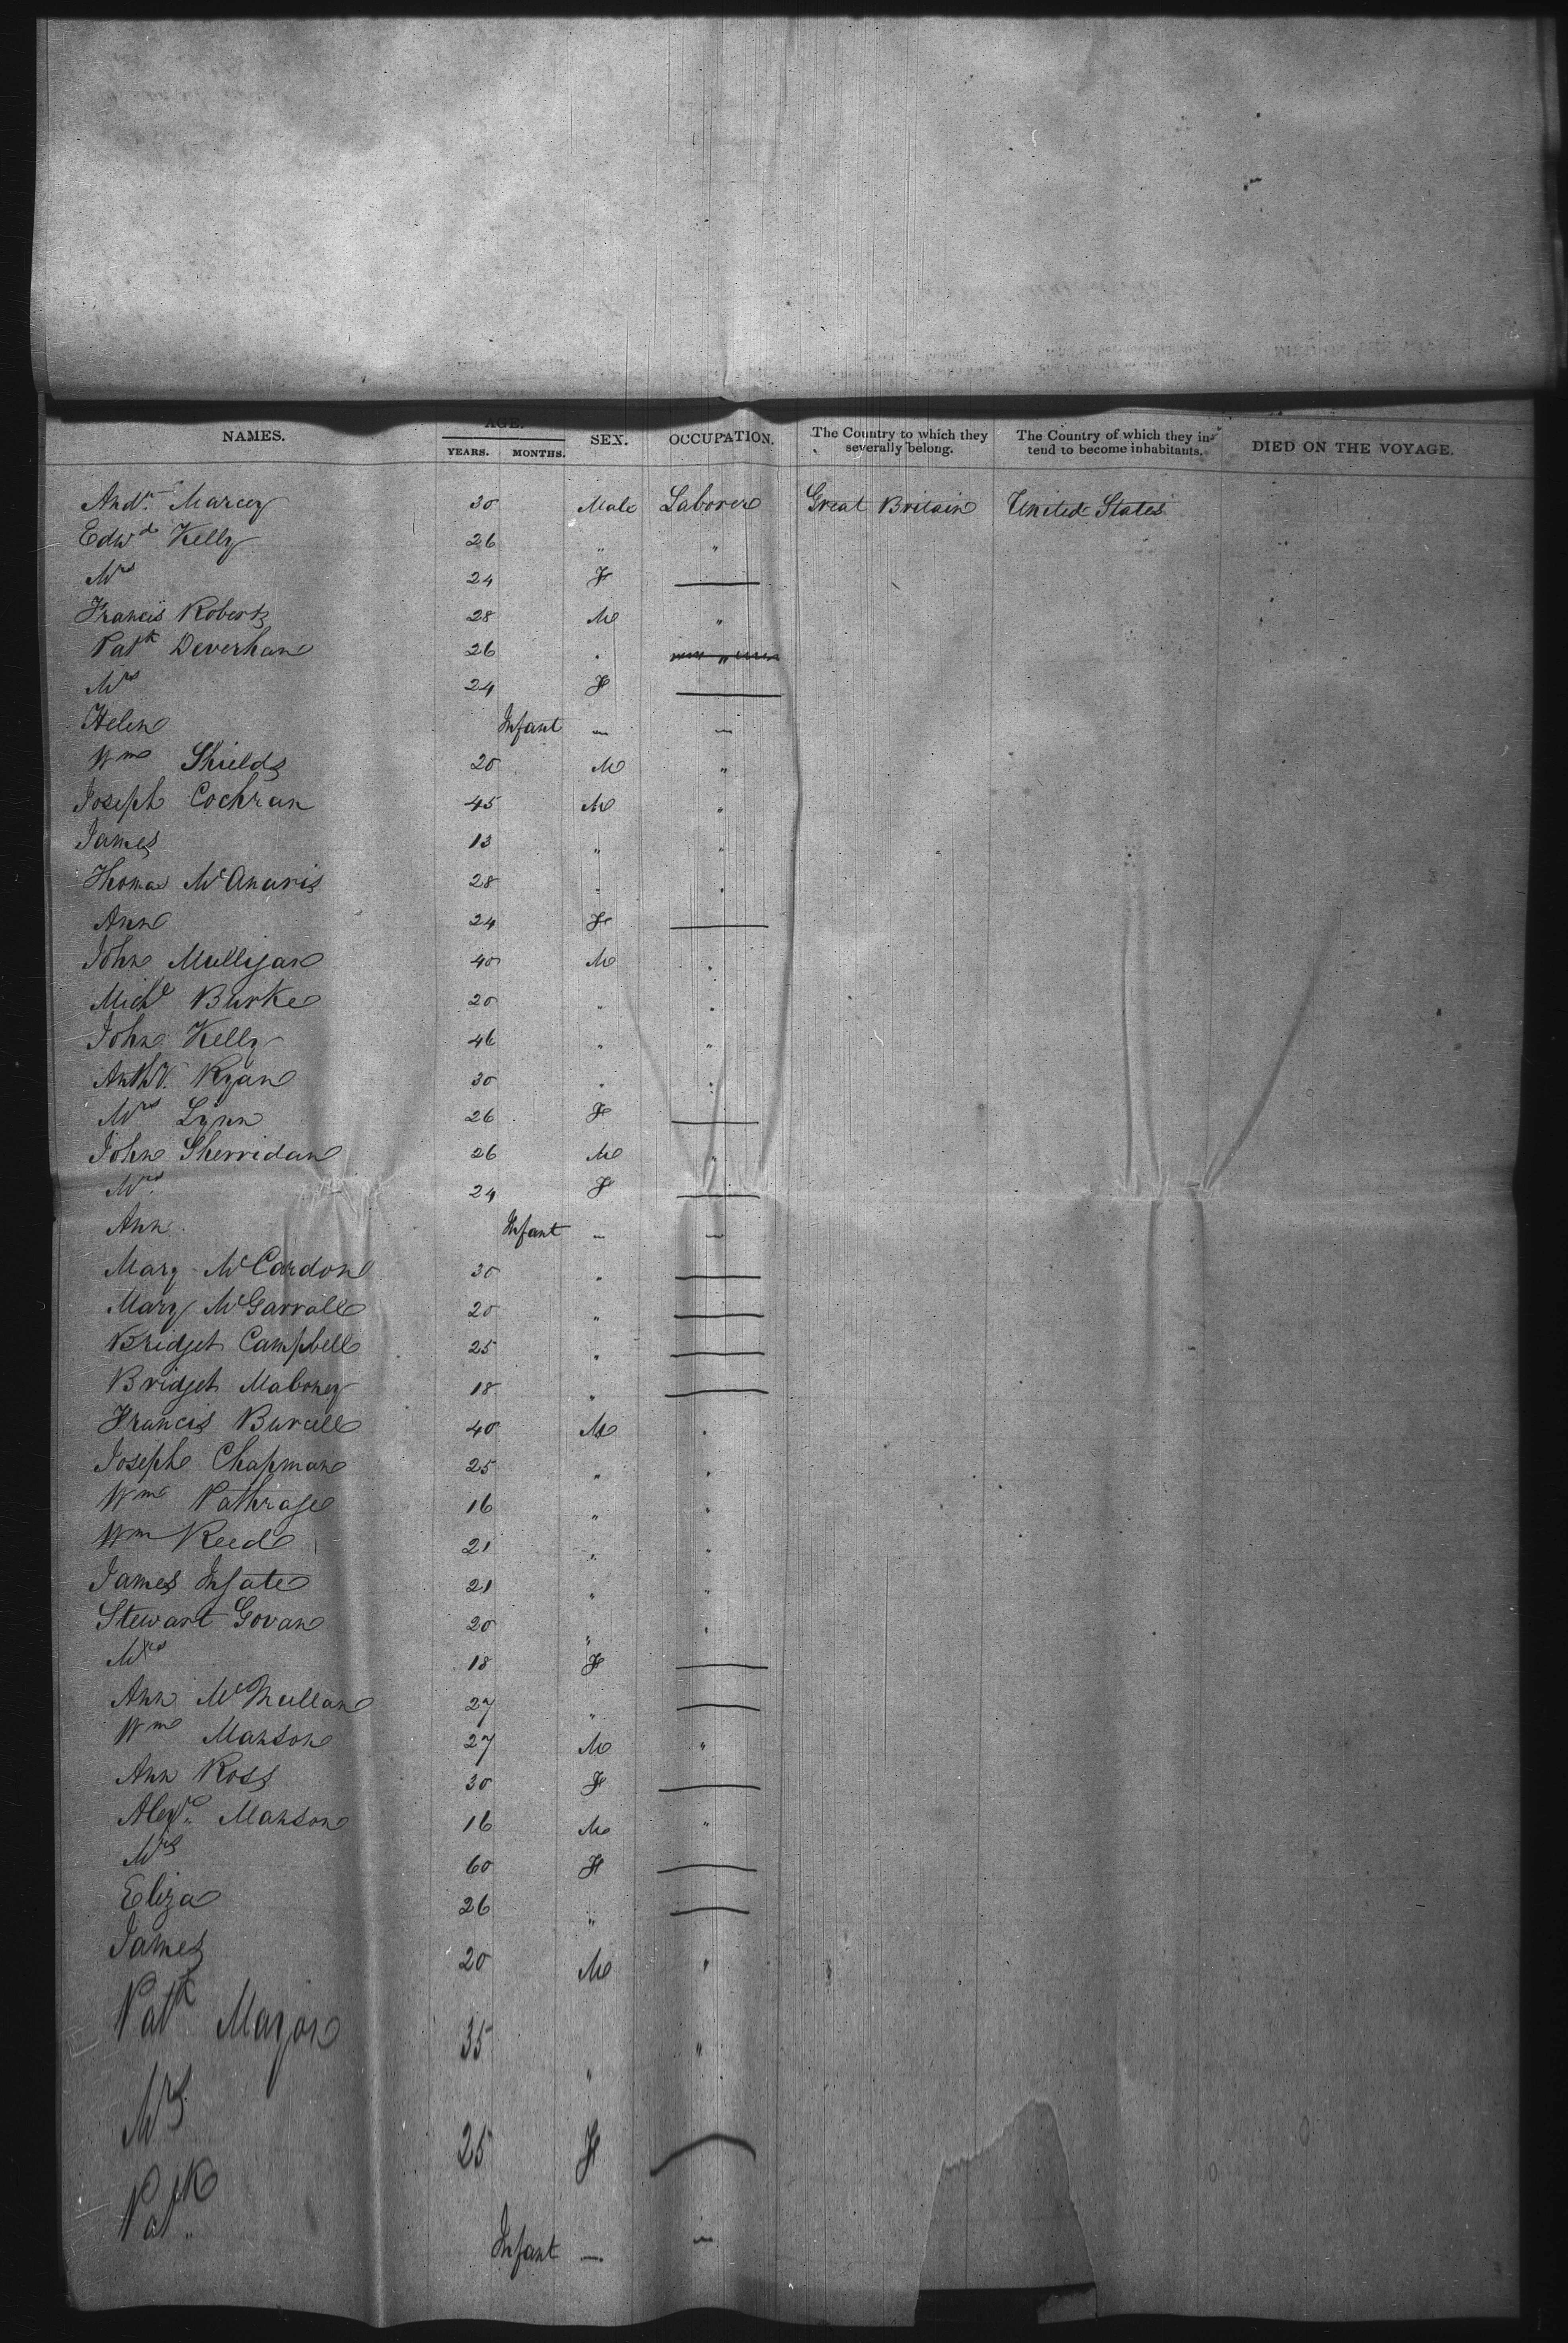 NAMES. AGE. YEARS. MONTHS. SEX. OCCUPATION. The Country to which they severally belong. The Country of which they intend to become inhabitants. DIED ON THE VOYAGE.
Andw. Marcey 30 Male Laborer Great Britain United States
Edwd Kelly 26 " "
Mrs 24 F —
Francis Roberts 28 M "
Patk Deverhan 26 "
Mrs 24 F —
Helen Infant — —
Wm Shields 20 M "
Joseph Cochran 45 M "
James 13 " "
Thomas McAnaris 28 " "
Ann 24 F —
John Mulligan 40 M "
Michl Burke 20 " "
John Kelly 46 " "
Anthy. Ryan 30 " "
Mrs Lynn 26 F —
John Sherridan 26 M "
Mrs. 24 F —
Ann Infant — —
Mary McCardon 30 " —
Mary McGarrall 20 " —
Bridget Campbell 25 " —
Bridget Mahoney 18 " —
Francis Burcell 40 M "
Joseph Chapman 25 " "
Wm Pathrage 16 " "
Wm Reed 21 " "
James Ingate 21 " "
Stewart Govan 20 " "
Mrs 18 F —
Ann McMullan 27 " —
Wm Manson 27 M "
Ann Ross 30 F —
Alexr. Manson 16 M "
Mrs 60 F —
Eliza 26 " —
James 20 M "
Patk 35 " "
Mrs 25 F —
Patk Infant — —